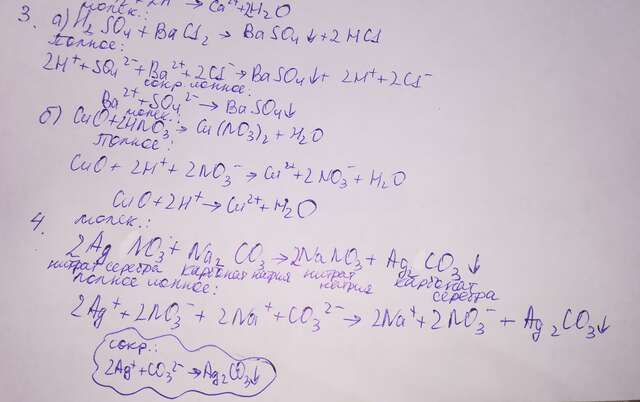 Ca²⁺+2H₂O
молек.:
3. а) H₂SO₄ + BaCl₂ → BaSO₄↓ + 2HCl
полное:
2H⁺+SO₄²⁻+Ba²⁺+2Cl⁻→BaSO₄↓+ 2H⁺+2Cl⁻
сокр. ионное:
Ba²⁺+SO₄²⁻→ BaSO₄↓
молек.:
б) CuO+2HNO₃→ Cu(NO₃)₂ + H₂O
полное:
CuO+ 2H⁺ + 2NO₃⁻→Cu²⁺+2NO₃⁻+H₂O
CuO+2H⁺→Cu²⁺+H₂O
4. молек.:
2AgNO₃+ Na₂CO₃→2NaNO₃+ Ag₂CO₃↓
нитрат серебра карбонат натрия нитрат натрия карбонат серебра
полное ионное:
2Ag⁺+2NO₃⁻ + 2Na⁺+CO₃²⁻→ 2Na⁺+2NO₃⁻ + Ag₂CO₃↓
сокр.:
2Ag⁺+CO₃²⁻→Ag₂CO₃↓